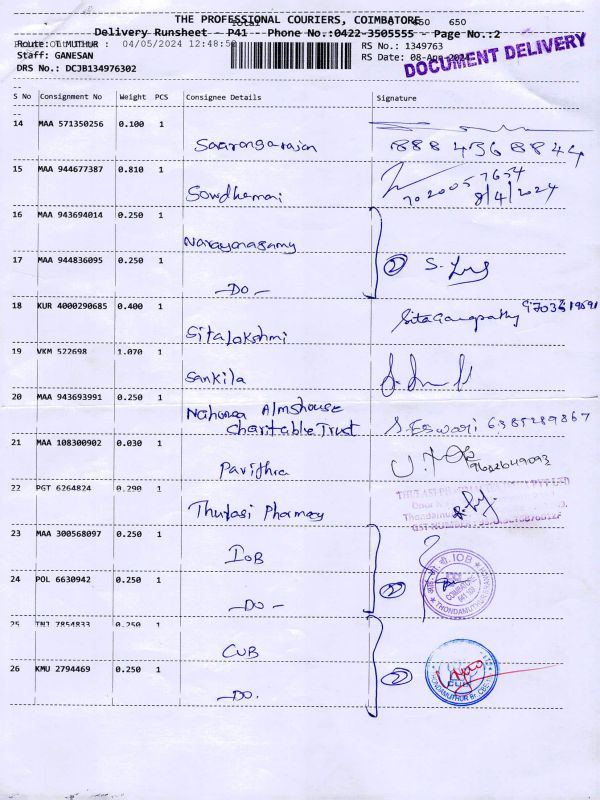 THE PROFESSIONAL COURIERS, COIMBATORE 650 650
Delivery Runsheet - P41 Phone No.:0422-3505555 - Page No.:2
Route: T MUTHUR : 04/05/2024 12:48:50 RS No.: 1349763
Staff: GANESAN RS Date: 08-Apr-2024
DRS No.: DCJB134976302
DOCUMENT DELIVERY
S No Consignment No Weight PCS Consignee Details Signature
14 MAA 571350256 0.100 1
15 MAA 944677387 0.810 1
Sowdhamani 8/4/2024
16 MAA 943694014 0.250 1
Narayanasamy
17 MAA 944836095 0.250 1 2
-DO-
18 KUR 4000290685 0.400 1
Sitalakshmi SitaGanapathy
19 VKM 522698 1.070 1
Sankila
20 MAA 943693991 0.250 1
Almshouse
charitable Trust S. Eswari 6385289867
21 MAA 108300902 0.030 1
Pavithra
22 PGT 6264824 0.290 1
Thulasi Pharmacy
23 MAA 300568097 0.250 1
IOB
24 POL 6630942 0.250 1 2
-DO-
25 TNJ 7854833 0.250 1
CUB
26 KMU 2794469 0.250 1 2
-DO.